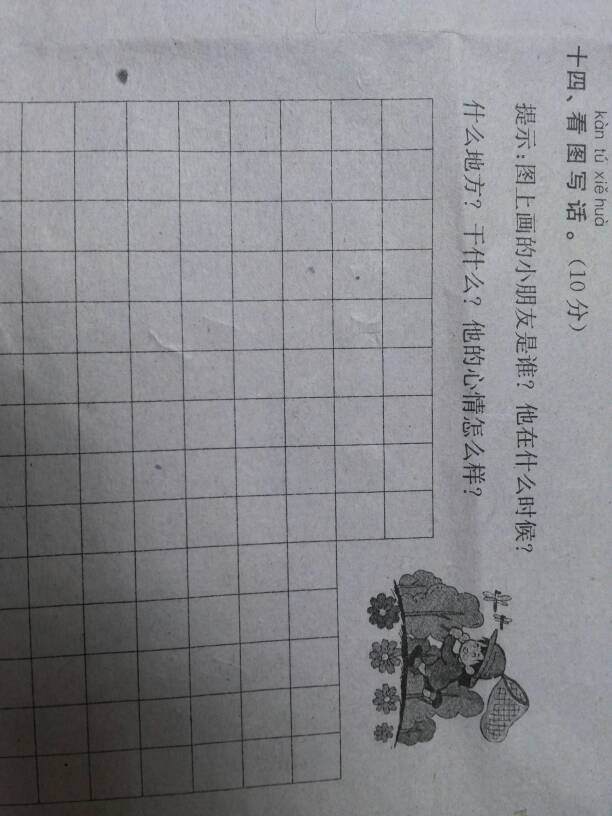 kàn tú xiě huà
十四、看图写话。(10分)
提示:图上画的小朋友是谁?他在什么时候?
什么地方?干什么?他的心情怎么样?